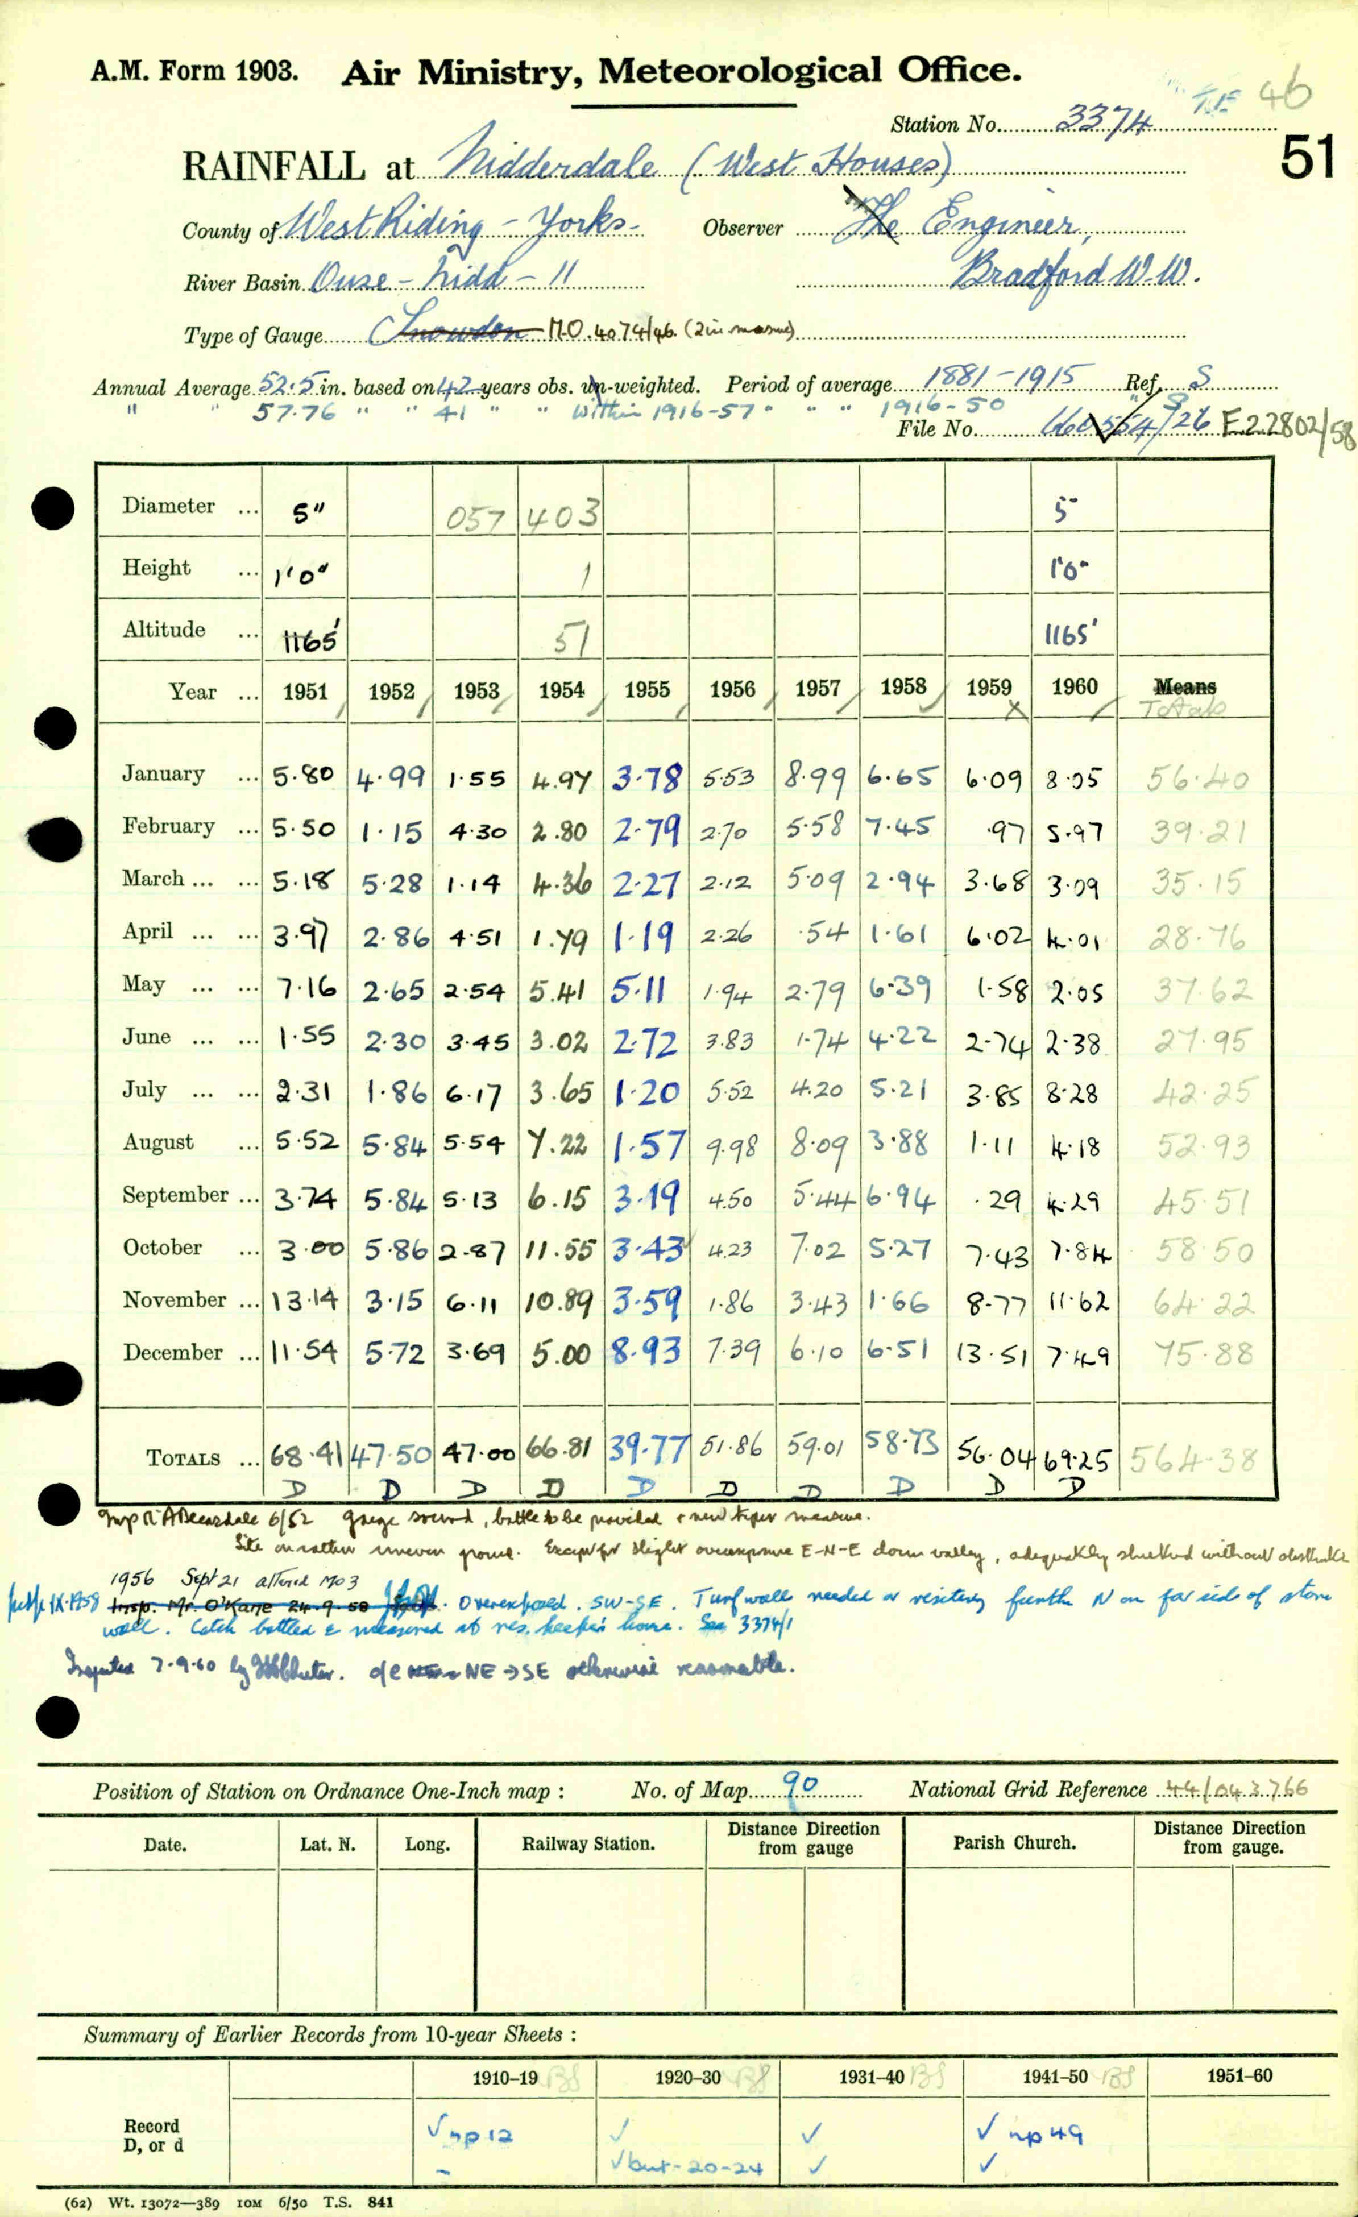 A.M. Form 1903. Air Ministry, Meteorological Office.
46
Station No. 3374
51
RAINFALL at Nidderdale (West Houses)
County of West Riding - Yorks. Observer The Engineer,
River Basin Ouse - Nidd - 11 Bradford W.W.
Type of Gauge Snowdon M.O. 4074/46. (2 in measure)
Annual Average 52.5 in. based on 42 years obs. un-weighted. Period of average 1881-1915 Ref. S
" " 57.76 " " 41 " " within 1916-57 " " " 1916-50 " S
File No. 554/26 F.22802/58
Diameter ... 5" 057 403 5"
Height ... 1'0" 1 1'0"
Altitude ... 1165' 51 1165'
Year ... 1951 1952 1953 1954 1955 1956 1957 1958 1959 1960 Means
Totals
January ... 5.80 4.99 1.55 4.97 3.78 5.53 8.99 6.65 6.09 8.05 56.40
February ... 5.50 1.15 4.30 2.80 2.79 2.70 5.58 7.45 .97 5.97 39.21
March ... ... 5.18 5.28 1.14 4.36 2.27 2.12 5.09 2.94 3.68 3.09 35.15
April ... ... 3.97 2.86 4.51 1.79 1.19 2.26 .54 1.61 6.02 4.01 28.76
May ... ... 7.16 2.65 2.54 5.41 5.11 1.94 2.79 6.39 1.58 2.05 37.62
June ... ... 1.55 2.30 3.45 3.02 2.72 3.83 1.74 4.22 2.74 2.38 27.95
July ... ... 2.31 1.86 6.17 3.65 1.20 5.52 4.20 5.21 3.85 8.28 42.25
August ... 5.52 5.84 5.54 7.22 1.57 9.98 8.09 3.88 1.11 4.18 52.93
September ... 3.74 5.84 5.13 6.15 3.19 4.50 5.44 6.94 .29 4.29 45.51
October ... 3.00 5.86 2.87 11.55 3.43 4.23 7.02 5.27 7.43 7.84 58.50
November ... 13.14 3.15 6.11 10.89 3.59 1.86 3.43 1.66 8.77 11.62 64.22
December ... 11.54 5.72 3.69 5.00 8.93 7.39 6.10 6.51 13.51 7.49 75.88
TOTALS ... 68.41 47.50 47.00 66.81 39.77 51.86 59.01 58.73 56.04 69.25 564.38
D D D D D D D D D D
Insp 6/52 gauge sound, bottle to be provided + new taper measure.
Site on rather uneven ground. Except for slight overexposure E-N-E down valley, adequately sheltered without obstacle
1956 Sept 21 altered MO3
Insp. Mr. O'Kane 24-9-58 Overexposed. SW-SE. Turf wall needed or resiting further N on far side of stone
wall. Catch bottled & measured at res. keeper's house. See 3374/1
Inspected 7-9-60 by NE → SE otherwise reasonable.
Position of Station on Ordnance One-Inch map : No. of Map 90 National Grid Reference 44/043766
Date. Lat. N. Long. Railway Station. Distance from Direction gauge Parish Church. Distance from Direction gauge.
Summary of Earlier Records from 10-year Sheets :
1910-19 BS 1920-30 BS 1931-40 BS 1941-50 BS 1951-60
Record ✓ np 12 ✓ ✓ ✓ np 49
D, or d - ✓ but - 20-24 ✓ ✓
(62) Wt. 13072—389 10M 6/50 T.S. 841